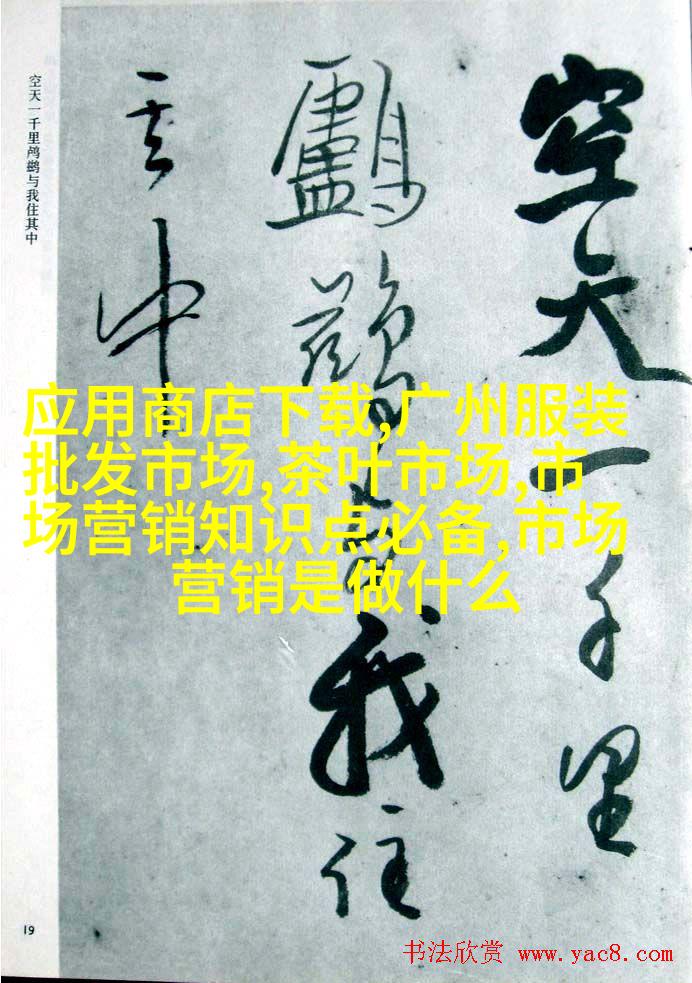 空天一千里
鸕鷀我住
其中
空天一千里鸬鹚与我住其中
应用商店下载,广州服装
批发市场,茶叶市场,市
场营销知识点必备,市场
营销是做什么
19
书法欣赏 www.yac8.com